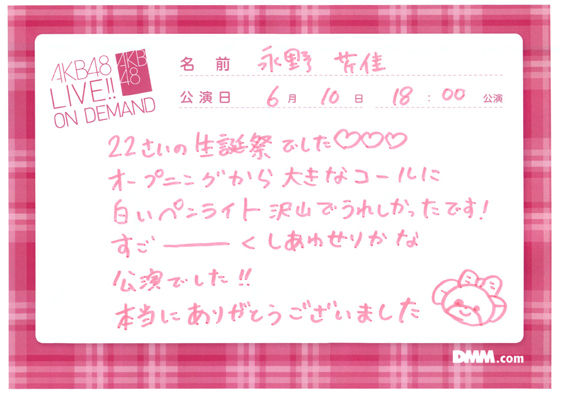 AKB48
LIVE!!
ON DEMAND
AKB
48
名前 永野 芹佳
公演日 6月 10日 18:00 公演
22さいの生誕祭でした♡♡♡
オープニングから大きなコールに
白いペンライト沢山でうれしかったです!
すご———くしあわせりかな
公演でした!!
本当にありがとうございました
DMM.com